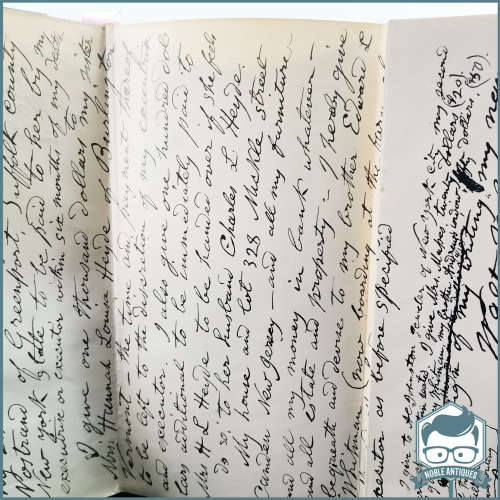 My
of Greenport, Suffolk county
New York state to be paid to her by my
executive or executor within six months of my
I give one thousand dollars to my sister
Mrs Hannah Louisa Heyde of Burlington
Vermont - the time and payment thereof
to be left to the discretion of my executrix
and executor. I also give one hundred dol
lars additional to be immediately paid to
H L Heyde to be handed over if she feels
do so to her husband Charles L. Heyde.
My house and lot 328 Mickle street
Camden New Jersey - and all my furniture
and all my money in bank whatever
and all estate and property - I hereby give
bequeath and devise to my brother Edward L
Whitman (now boarding at the
executor as before specified
Johnston jeweler of New York city my second
I give twenty dollars ($20).
dollars ($50).
of my writing, my
NOBLE ANTIQUES